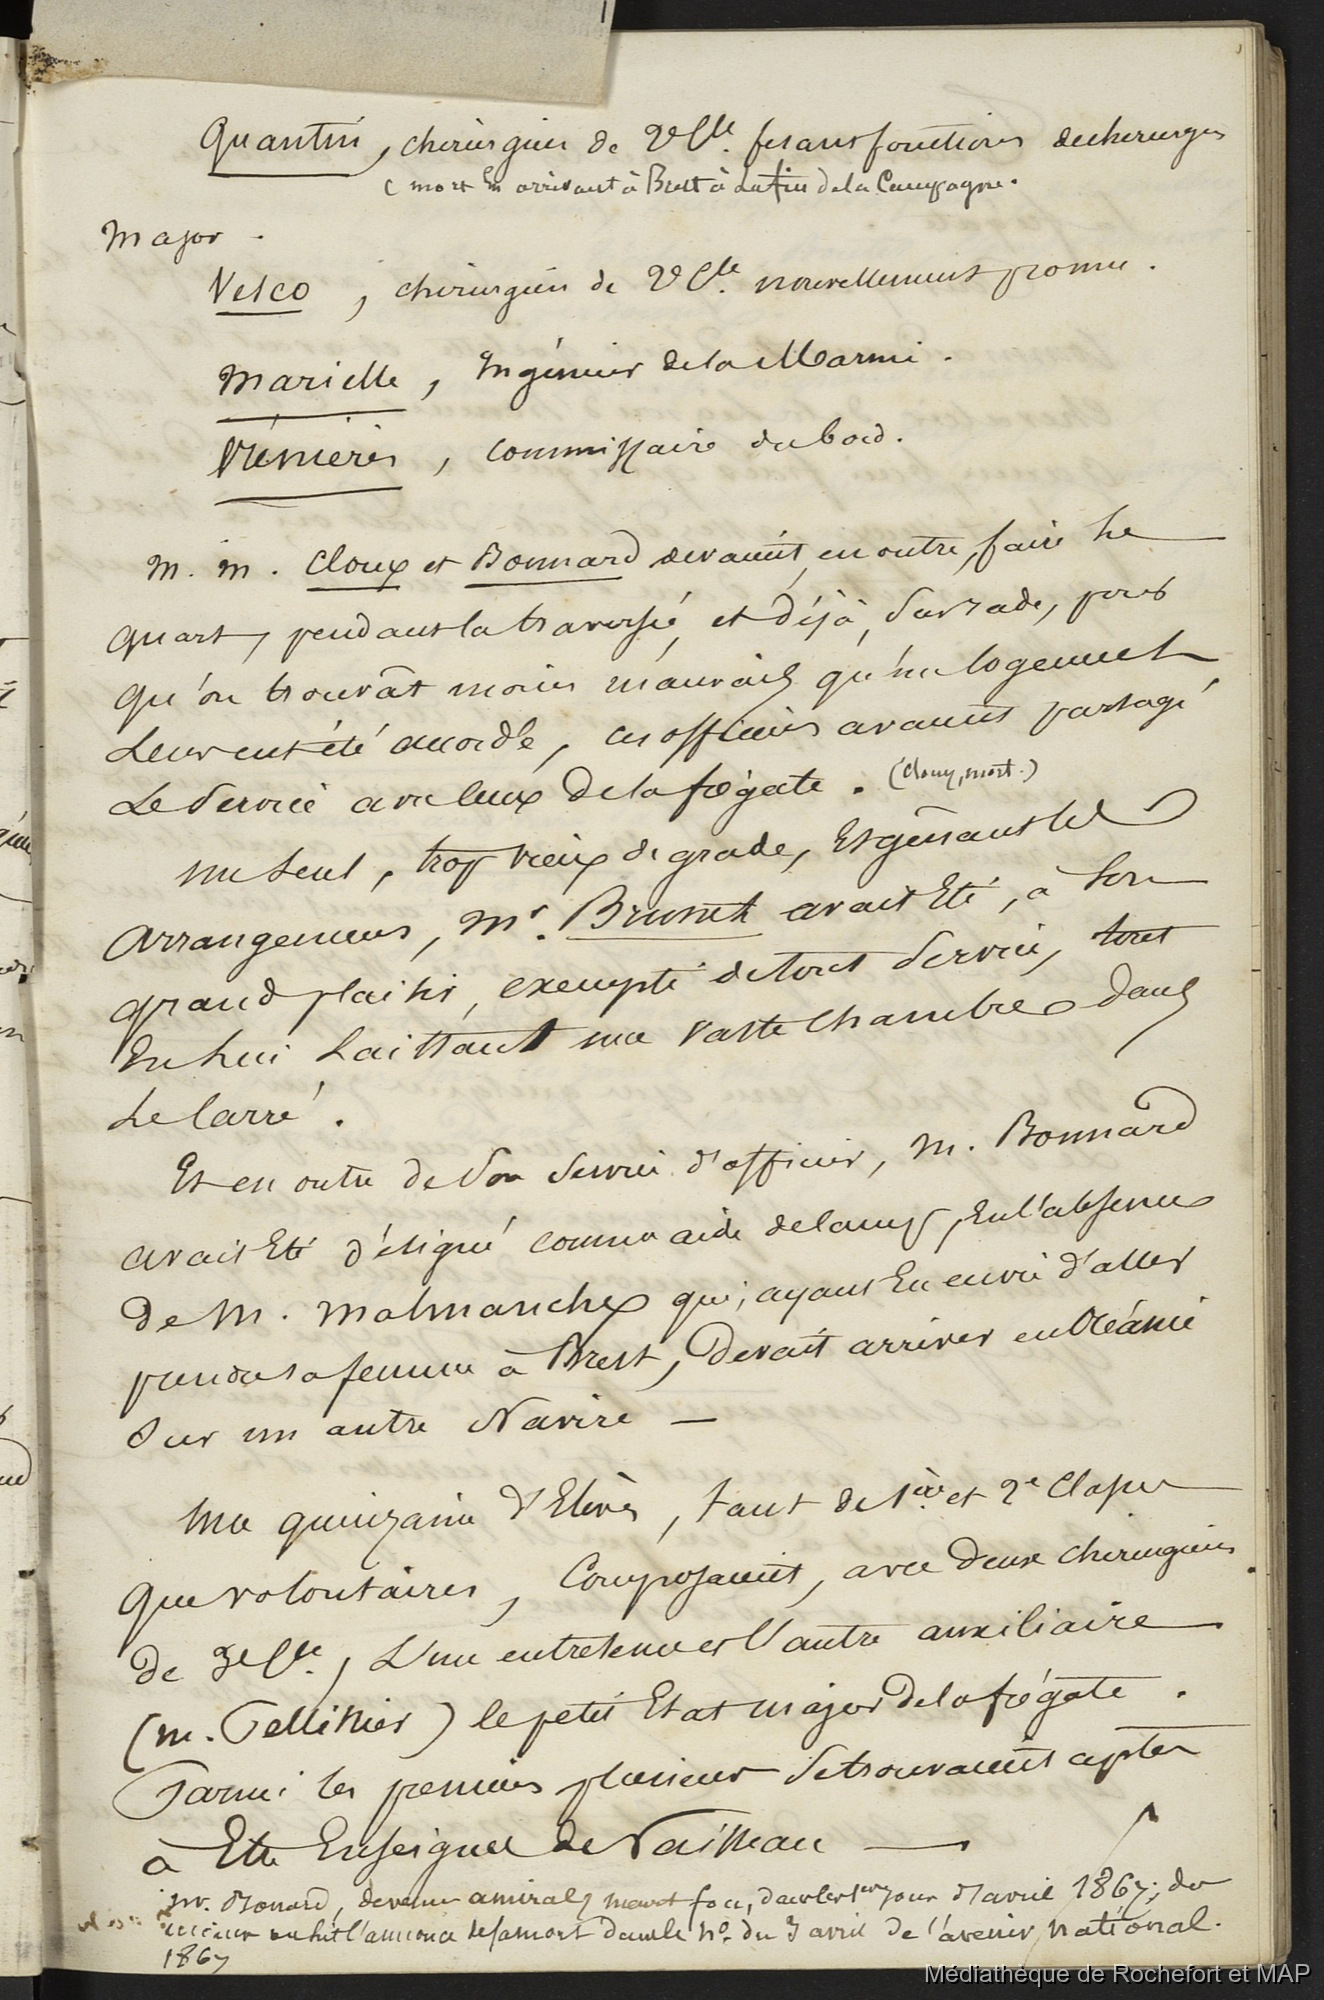 Quantin, chirurgien de 2e Cle. fesans fonctions de chirurgien
(mort en arrivant à Brest à la fin de la Campagne.
Major.
Vesco, chirurgien de 2e Cle. nouvellement promu.
Marielle, Ingénieur de la Marine.
Vénières, commissaire du bord.
M. M. Cloux et Bonnard devaient, en outre, faire le
quart, pendant la traversée, et déjà, sur rade,
qu'on trouvât moins mauvais qu'un logement
leur eut été accordé, ces officiers avaient partagé
le service avec ceux de la frégate. (Cloux, mort.)
un seul, trop vieux de grade, et gênant les
arrangemens, Mr. Brunet avait été, à son
grand plaisir, exempté de tout service, tout
en lui laissant une vaste chambre dans
le Carré.
Et en outre de son service d'officier, M. Bonnard
avait été désigné comme aide de camp, en l'absence
de M. Malmanche qui, ayant eu envie d'aller
prendre sa femme à Brest, devait arriver en Océanie
sur un autre Navire —
une quinzaine d'Elèves, tant de 1ère et 2e Classe
que volontaires, composaient, avec deux chirurgiens
de 3e Cle., l'un entretenu et l'autre auxiliaire
(M. Pellissier) le petit Etat major de la frégate.
Parmi les premiers plusieurs se trouvaient aptes
à être Enseignes de Vaisseau —
Mr. Bonard, devenu amiral, meurt fou, dans les 1ers jours d'avril 1867; du
moins on lut l'annonce de sa mort dans le No. du 3 avril de l'avenir national.
1867
Médiathèque de Rochefort et MAP